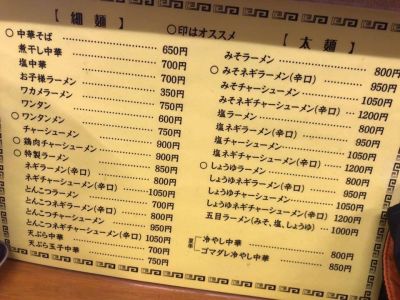 【 細 麺 】
○印はオススメ
【 太 麺 】
○中華そば 650円
煮干し中華 700円
塩中華 700円
お子様ラーメン 350円
ワカメラーメン 750円
ワンタン 600円
○ワンタンメン 750円
チャーシューメン 900円
○鶏肉チャーシューメン 900円
○特製ラーメン 850円
ネギラーメン(辛口) 800円
ネギチャーシューメン(辛口) 1050円
とんこつラーメン 700円
とんこつネギラーメン(辛口) 800円
とんこつチャーシューメン 950円
とんこつネギチャーシューメン(辛口) 1050円
天ぷら中華 700円
天ぷら玉子中華 750円
みそラーメン 800円
○みそネギラーメン(辛口) 950円
みそチャーシューメン 1050円
みそネギチャーシューメン(辛口) 1200円
塩ラーメン 800円
塩ネギラーメン(辛口) 950円
塩チャーシューメン 1050円
塩ネギチャーシューメン(辛口) 1200円
○しょうゆラーメン 800円
しょうゆネギラーメン(辛口) 950円
しょうゆチャーシューメン 1050円
しょうゆネギチャーシューメン(辛口) 1200円
五目ラーメン(みそ、塩、しょうゆ) 1000円
夏季
冷やし中華 800円
ゴマダレ冷やし中華 850円